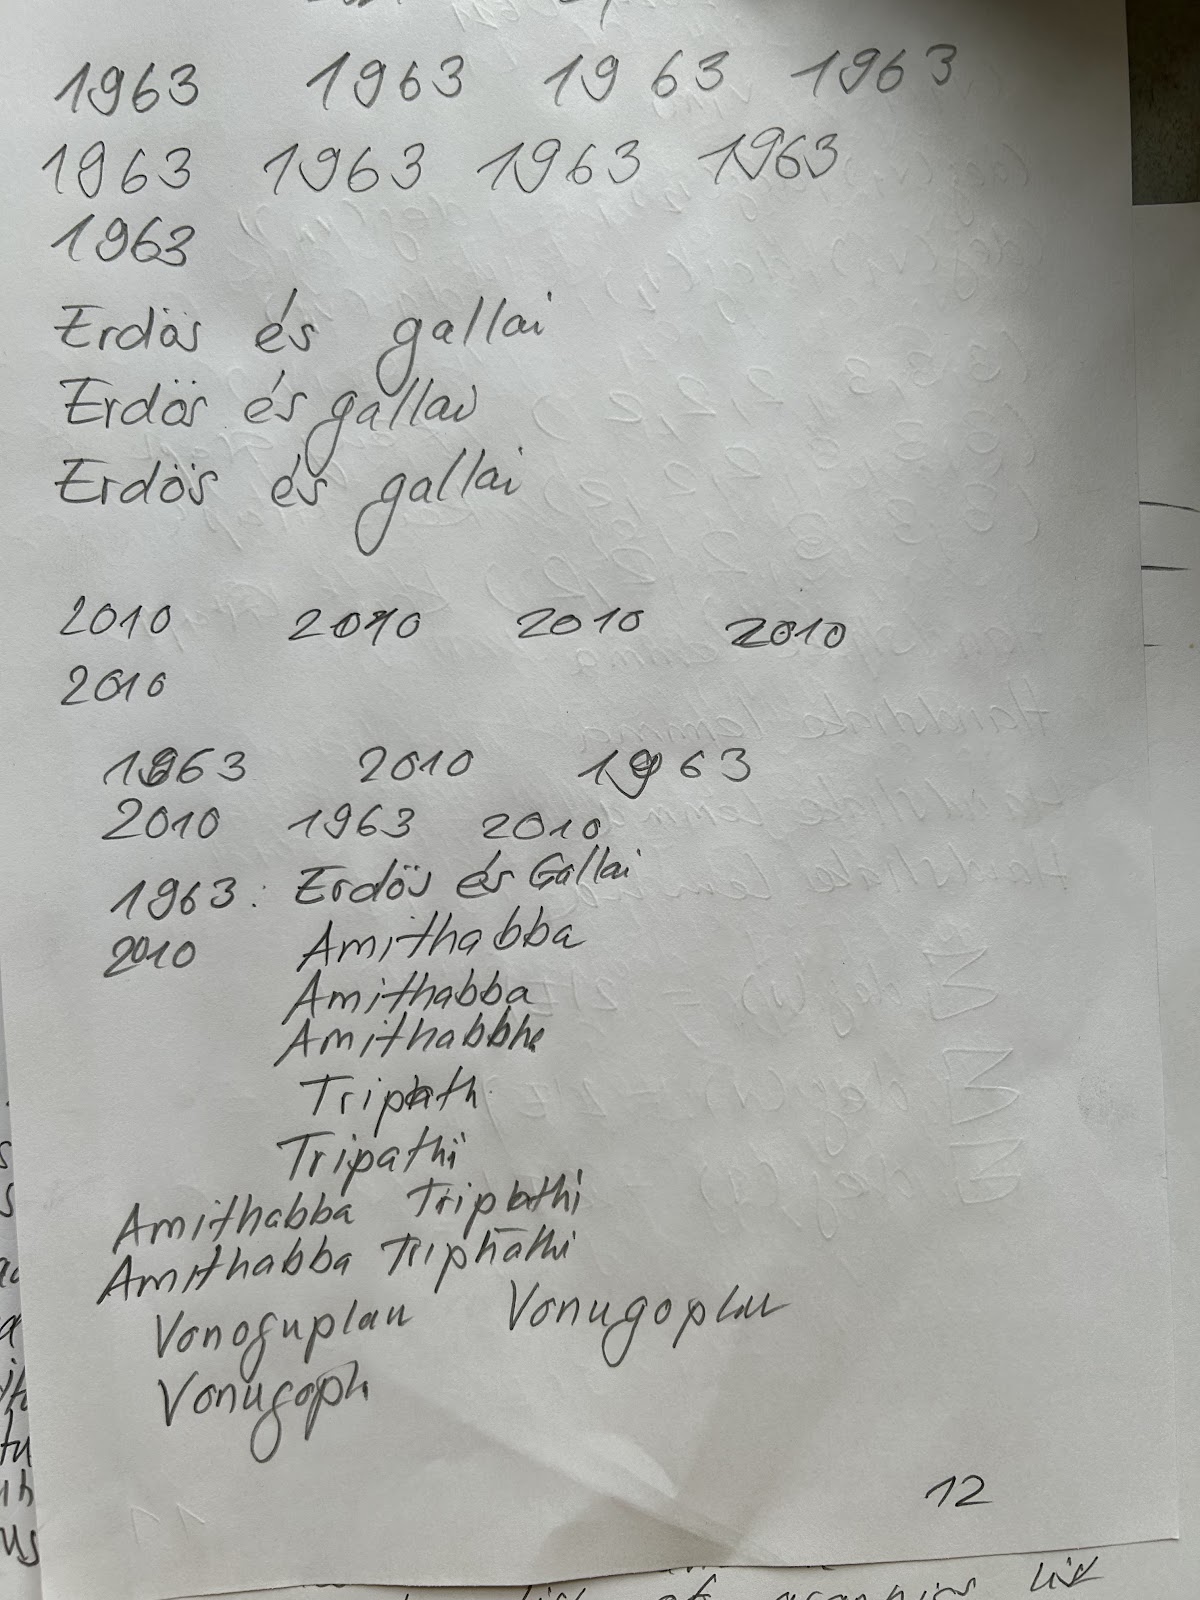 1963 1963 1963 1963
1963 1963 1963 1963
1963
Erdös és gallai
Erdös és gallai
Erdös és gallai
2010 2010 2010 2010
2010
1963 2010 1963
2010 1963 2010
1963: Erdös és Gallai
2010 Amithabba
Amithabba
Amithabbha
Tripath
Tripathi
Amithabba Tripathi
Amithabba Triphathi
Vonoguplan Vonugoplu
Vonugoph
12
of graphins list